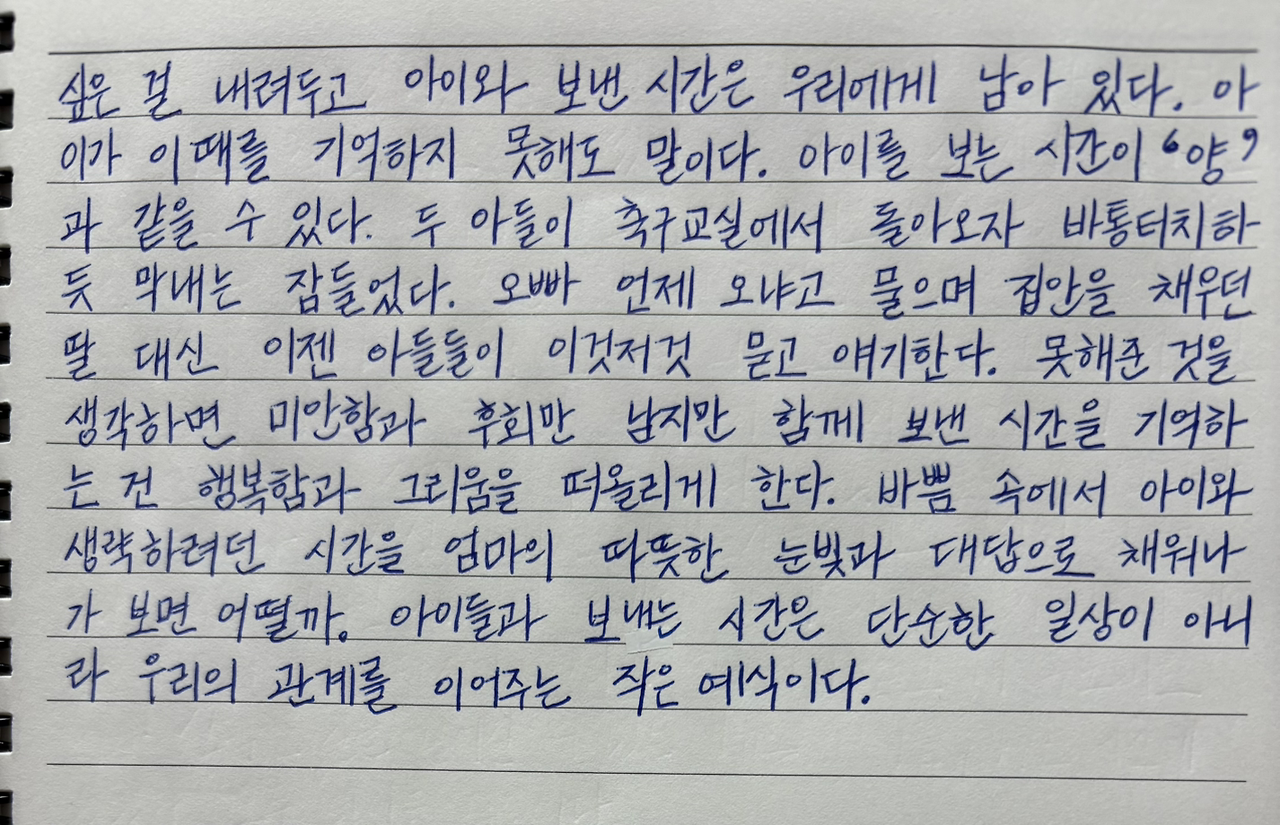 싶은 걸 내려두고 아이와 보낸 시간은 우리에게 남아 있다. 아
이가 이때를 기억하지 못해도 말이다. 아이를 보는 시간이 ‘양’
과 같을 수 있다. 두 아들이 축구교실에서 돌아오자 바통터치하
듯 막내는 잠들었다. 오빠 언제 오냐고 물으며 집안을 채우던
딸 대신 이젠 아들들이 이것저것 묻고 얘기한다. 못해준 것을
생각하면 미안함과 후회만 남지만 함께 보낸 시간을 기억하
는 건 행복함과 그리움을 떠올리게 한다. 바쁨 속에서 아이와
생략하려던 시간을 엄마의 따뜻한 눈빛과 대답으로 채워나
가 보면 어떨까. 아이들과 보내는 시간은 단순한 일상이 아니
라 우리의 관계를 이어주는 작은 예식이다.